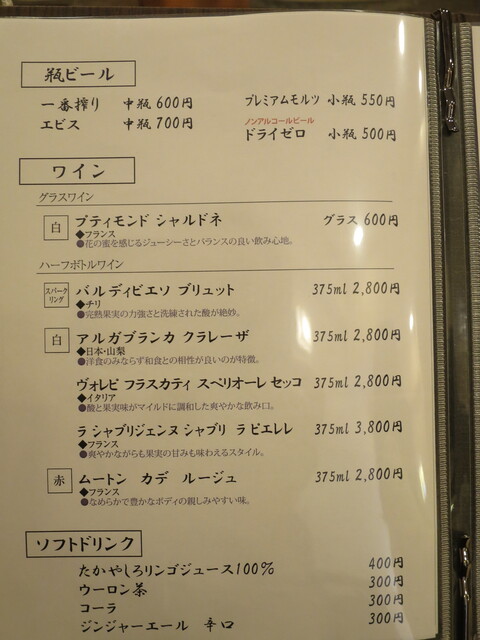 瓶ビール
一番搾り 中瓶 600円 プレミアムモルツ 小瓶 550円
ノンアルコールビール
エビス 中瓶 700円 ドライゼロ 小瓶 500円
ワイン
グラスワイン
白 プティモンド シャルドネ グラス 600円
◆フランス
●花の蜜を感じるジューシーさとバランスの良い飲み心地。
ハーフボトルワイン
スパークリング バル ディビエソ ブリュット 375ml 2,800円
◆チリ
●完熟果実の力強さと洗練された酸が絶妙。
白 アルガブランカ クラレーザ 375ml 2,800円
◆日本・山梨
●洋食のみならず和食との相性が良いのが特徴。
ヴォルピ フラスカティ スペリオーレ セッコ 375ml 2,800円
◆イタリア
●酸と果実味がマイルドに調和した爽やかな飲み口。
ラ シャブリジェンヌ シャブリ ラ ピエレレ 375ml 3,800円
◆フランス
●爽やかながらも果実の甘みも味わえるスタイル。
赤 ムートン カデ ルージュ 375ml 2,800円
◆フランス
●なめらかで豊かなボディの親しみやすい味。
ソフトドリンク
たかやしろリンゴジュース100% 400円
ウーロン茶 300円
コーラ 300円
ジンジャーエール 辛口 300円